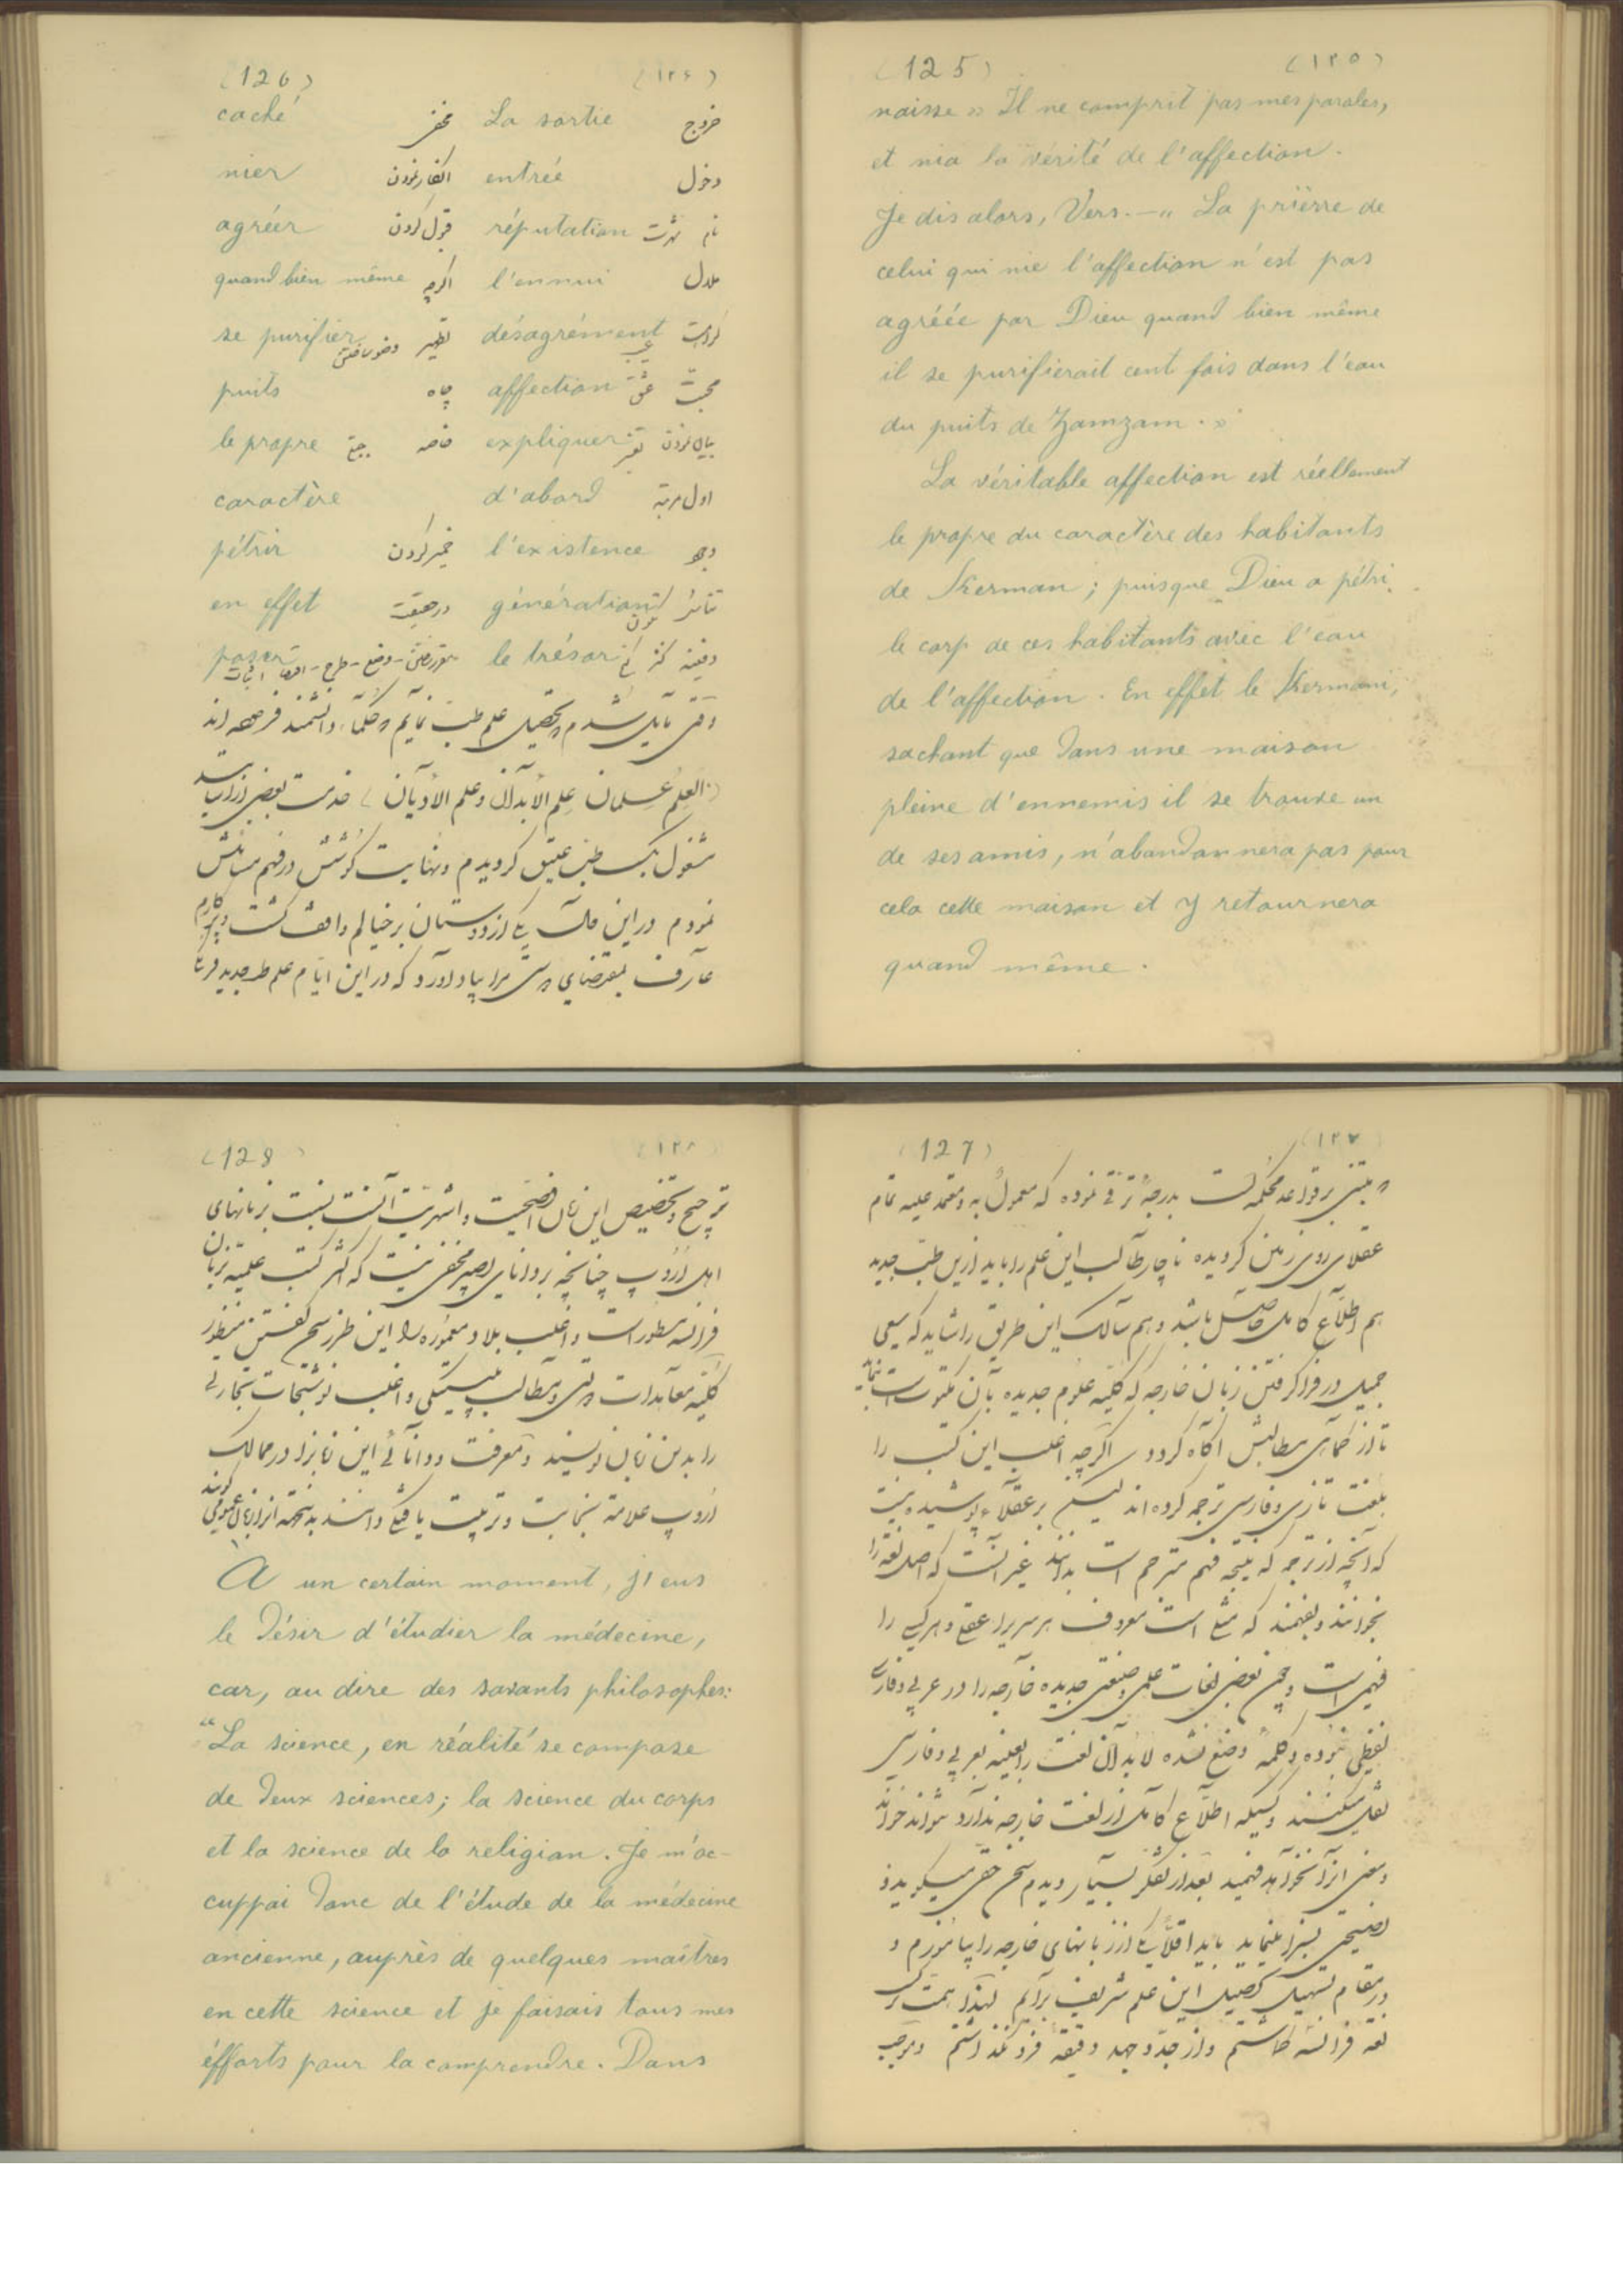 (125) (١٢٥)
naisse » Il ne comprit pas mes paroles,
et nia la vérité de l'affection.
Je dis alors, Vers. — „ La prièrre de
celui qui nie l'affection n'est pas
agréée par Dieu quand bien même
il se purifierait cent fois dans l'eau
du puits de Zamzam . »
La véritable affection est réellement
le propre du caractère des habitants
de Kerman ; puisque Dieu a pétri
le corp de ces habitants avec l'eau
de l'affection . En effet le Kermani,
sachant que dans une maison
pleine d'ennemis il se trouve un
de ses amis, n'abandonnera pas pour
cela cette maison et y retournera
quand même .
(126) (١٢۶)
caché مخفی La sortie خروج
nier انکار نمودن entrée دخول
agréer قبول کردن réputation شهرت نام
quand bien même اگرچه l'ennui ملال
se purifier تطهیر désagrément کراهت
puits چاه affection عشق محبت
le propre خاصه expliquer بیان نمودن
caractère d'abord اول مرتبه
pétrir خمیر کردن l'existence وجود
en effet در حقیقت génération
poser وضع - طرح le trésor گنج کنز دفینه
وقتی مایل شدم که تحصیل علم طب نمایم که حکماء دانشمند فرموده اند
(العلم علمان علم الابدان و علم الادیان) خدمت بعضی از اساتید
مشغول بکسب طب عتیق گردیدم و نهایت کوشش در فهم مسائلش
نمودم در این حال یکی از دوستان بر خیالم واقف گشت و بر کارم
عارف بمقتضای دوستی مرا بیاد آورد که در این ایام علم طب جدید فرنگ
(127) (١٢٧)
که مبتنی بر قواعد محکمه است بدرجهٔ ترقی نموده که معمول به و معتمد علیه تمام
عقلای روی زمین گردیده ناچار طالب این علم را باید از این طب جدید
هم اطلاع کامل حاصل باشد و هم سالک این طریق را شاید که سعی
جمیل در فرا گرفتن زبان خارجه که کلیه علوم جدیده بآن مکتوب است نماید
تا از حکماهی مطالبش آگاه گردد اگرچه اغلب این کتب را
بلغت تازی و فارسی ترجمه کرده اند لیکن بر عقلاء پوشیده نیست
که آنچه از ترجمه که نتیجه فهم مترجم است بدانند غیر آنست که اصل لغة را
بخوانند و بفهمند که مثلی است معروف هر سریرا عقلی و هر کسی را
فهمی است و چون بعضی لغات علمی و صنعتی جدیده خارجه را در عربی و فارسی
لفظی نبوده و کلمهٔ وضع نشده لابد آن لغت را بعینه بعربی و فارسی
نقل میکنند و کسیکه اطلاع کامل از لغت خارجه ندارد نتواند خواند
و معنی آنرا نخواهد فهمید بعد از تفکر بسیار دیدم سخن حقی میگوید و
نصیحتی بسزا مینماید باید اقلاً یکی از زبانهای خارجه را بیاموزم و
در مقام تسهیل تحصیل این علم شریف برآیم لهذا همت بر
لغة فرانسه گماشتم و از جد و جهد دقیقه فرو نگذاشتم و موجب
(128) (١٢٨)
ترجیح و تخصیص این زبان افصحیت و اشهریت آنست نسبت بزبانهای
اهل اروپ چنانچه بر دانای بصیر مخفی نیست که اکثر کتب علمیه بزبان
فرانسه مسطور است و اغلب بلاد معموره را این طرز سخن گفتن منظور
کلیه معاهدات دولتی و مطالب پلیتیکی و اغلب نوشتجات تجارتی
را بدین زبان نویسند و معرفت و دانائی این زبانرا در ممالک
اروپ علامت نجابت و تربیت یافتگی دانند بدینجهة آنرا زبان عمومی گویند
A un certain moment, j'eus
le désir d'étudier la médecine,
car, au dire des savants philosophes:
“La science, en réalité se compose
de deux sciences; la science du corps
et la science de la religion. Je m'oc-
cuppai donc de l'étude de la médecine
ancienne, auprès de quelques maîtres
en cette science et je faisais tous mes
éfforts pour la comprendre. Dans